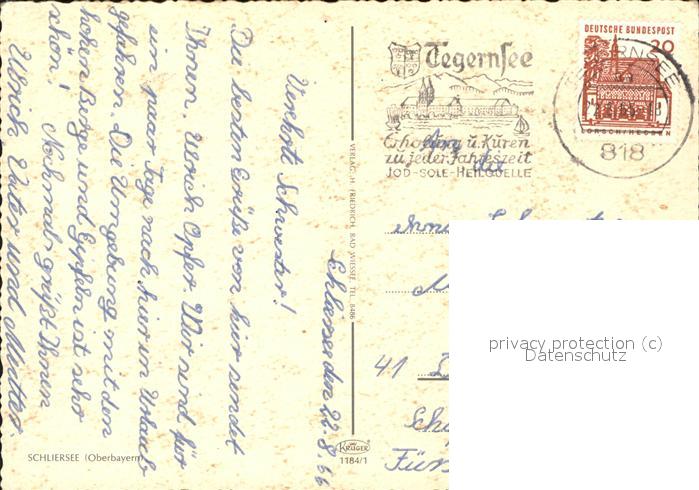 Schliersee den 22.8.66
Verehrte Schwester!
Die besten Grüße von hier sendet
Ihnen Ulrich Opfer. Wir sind für
ein paar Tage nach hier in Urlaub
gefahren. Die Umgebung mit den
hohen Berge und Gipfeln ist sehr
schön! Nochmals grüßt Ihnen
Ulrich Vater und Mutter
SCHLIERSEE (Oberbayern)
VERLAG: H. FRIEDRICH, BAD WIESSEE TEL. 8486
KRÜGER
1184/1
Tegernsee
Erholung u. Kuren
zu jeder Jahreszeit
JOD-SOLE-HEILQUELLE
DEUTSCHE BUNDESPOST
20
LORSCH/HESSEN
TEGERNSEE
818
An die
41
privacy protection (c)
Datenschutz